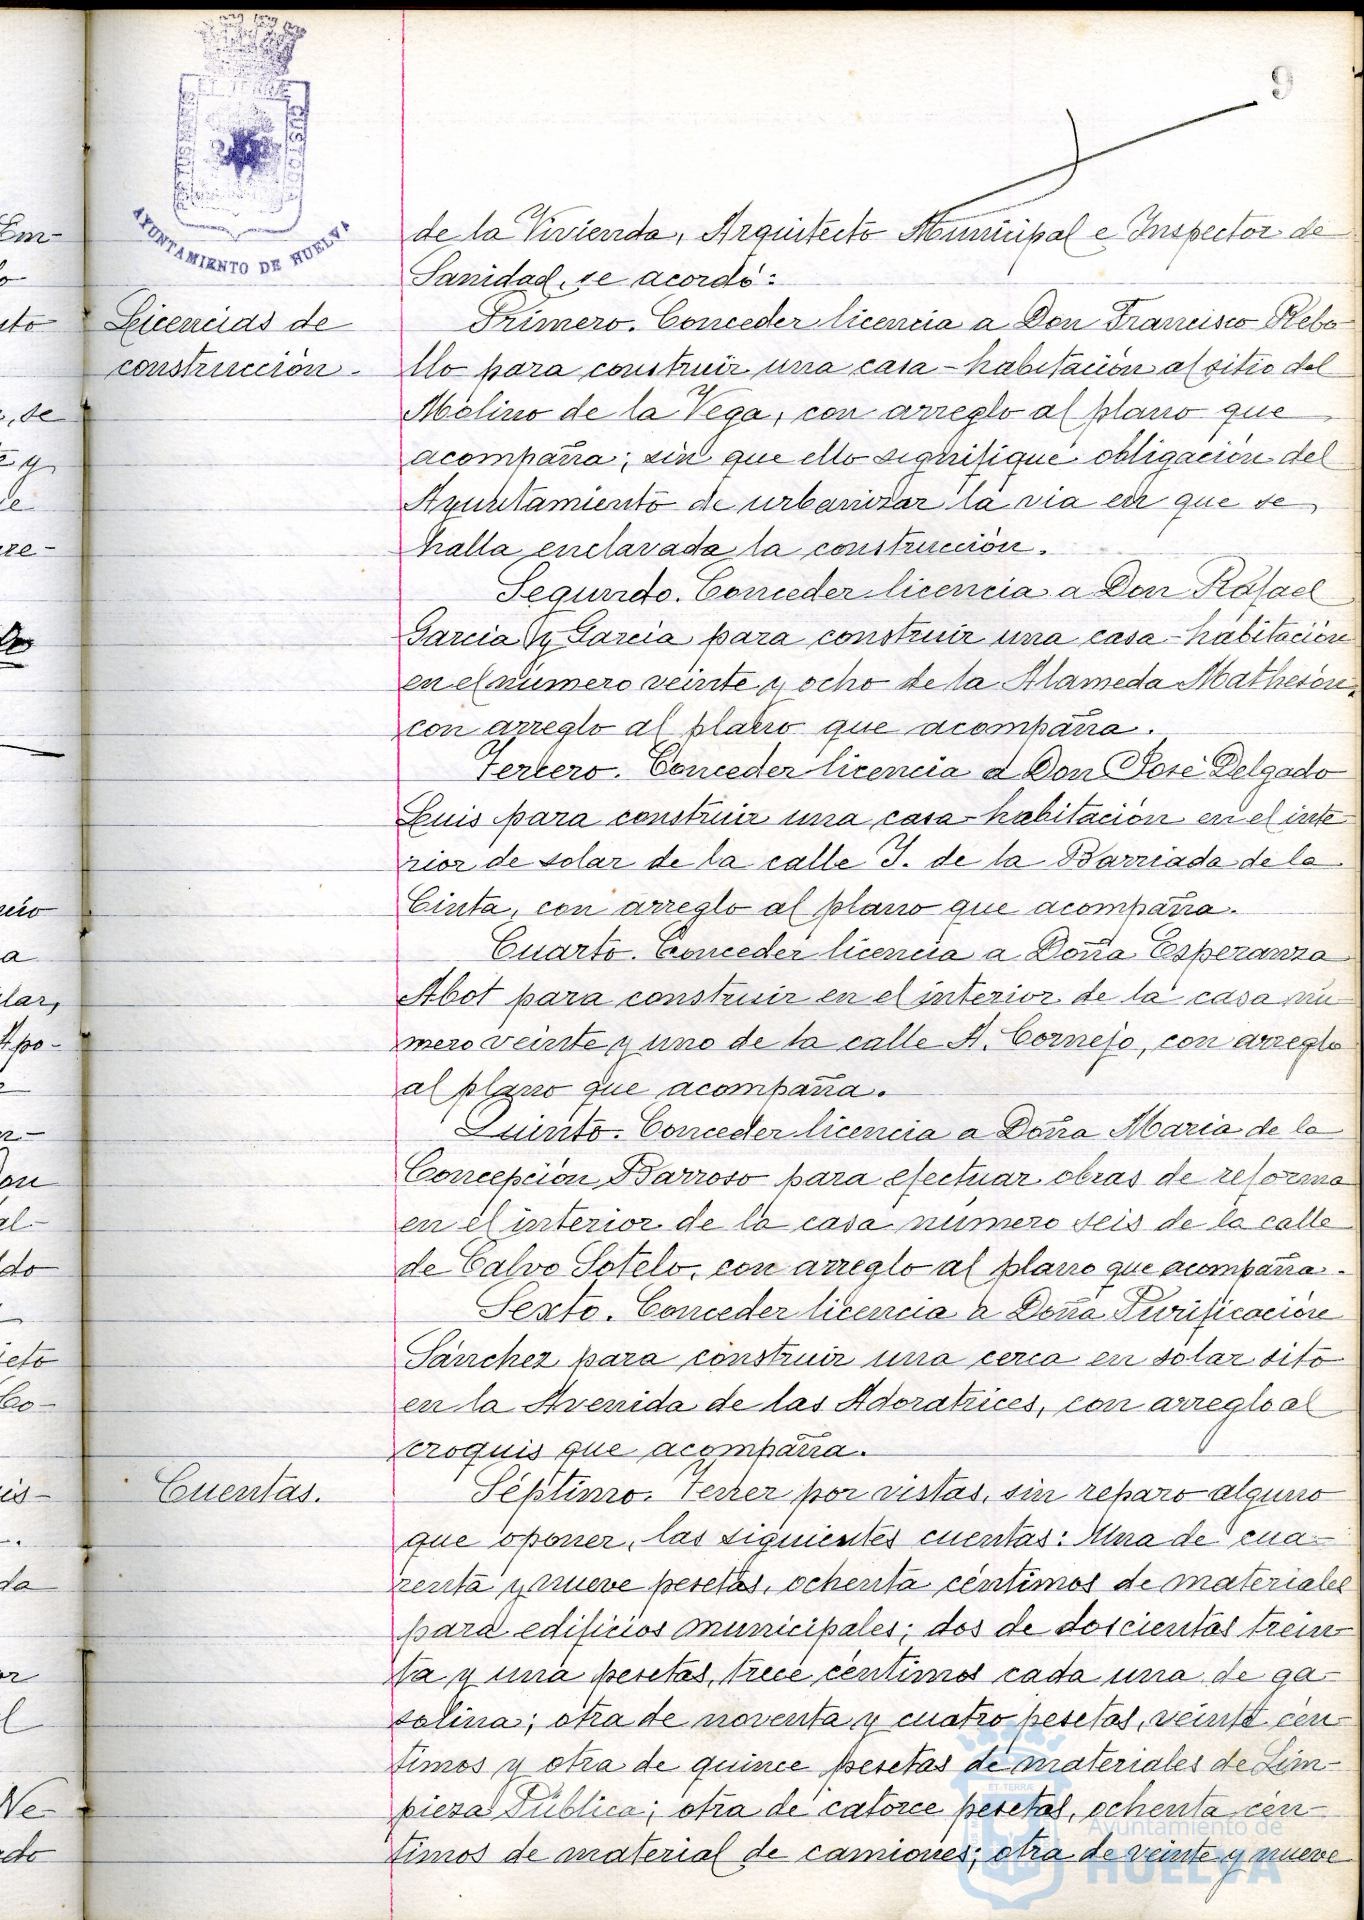 9
PORTUS MARIS ET TERRÆ CUSTODIA
AYUNTAMIENTO DE HUELVA
de la Vivienda, Arquitecto Municipal e Inspector de
Sanidad, se acordó:
Licencias de
construcción.
Primero. Conceder licencia a Don Francisco Rebo-
llo para construir una casa-habitación al sitio del
Molino de la Vega, con arreglo al plano que
acompaña; sin que ello signifique obligación del
Ayuntamiento de urbanizar la via en que se
halla enclavada la construcción.
Segundo. Conceder licencia a Don Rafael
Garcia y Garcia para construir una casa-habitación
en el número veinte y ocho de la Alameda Mathesón,
con arreglo al plano que acompaña.
Tercero. Conceder licencia a Don José Delgado
Luis para construir una casa-habitación en el inte-
rior de solar de la calle J. de la Barriada de la
Cinta, con arreglo al plano que acompaña.
Cuarto. Conceder licencia a Doña Esperanza
Abot para construir en el interior de la casa nú-
mero veinte y uno de la calle A. Cornejo, con arreglo
al plano que acompaña.
Quinto. Conceder licencia a Doña Maria de la
Concepción Barroso para efectuar obras de reforma
en el interior de la casa número seis de la calle
de Calvo Sotelo, con arreglo al plano que acompaña.
Sexto. Conceder licencia a Doña Purificación
Sánchez para construir una cerca en solar sito
en la Avenida de las Adoratrices, con arreglo al
croquis que acompaña.
Cuentas.
Séptimo. Tener por vistas, sin reparo alguno
que oponer, las siguientes cuentas: Una de cua-
renta y nueve pesetas, ochenta céntimos de materiales
para edificios municipales; dos de doscientas trein-
ta y una pesetas, trece céntimos cada una de ga-
solina; otra de noventa y cuatro pesetas, veinte cén-
timos y otra de quince pesetas de materiales de Lim-
pieza Pública; otra de catorce pesetas, ochenta cén-
timos de material de camiones; otra de veinte y nueve
Ayuntamiento de
HUELVA